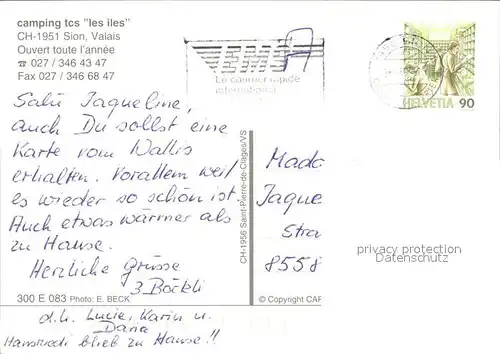 camping tcs "les iles"
CH-1951 Sion, Valais
Ouvert toute l'année
☎ 027 / 346 43 47
Fax 027 / 346 68 47
EMS
Le courrier rapide
international
HELVETIA 90
Salü Jaqueline,
auch Du sollst eine
Karte vom Wallis
erhalten. Vorallem weil
es wieder so schön ist.
Auch etwas wärmer als
zu Hause.
Herzliche Grüsse
3 Böckli
d.h. Lucie, Karin u.
Daria
Hansruedi blieb zu Hause!!
300 E 083 Photo: E. BECK
CH-1956 Saint-Pierre-de-Clages/VS
© Copyright CAR
Mada
Jaque
Stra
8558
privacy protection
Datenschutz